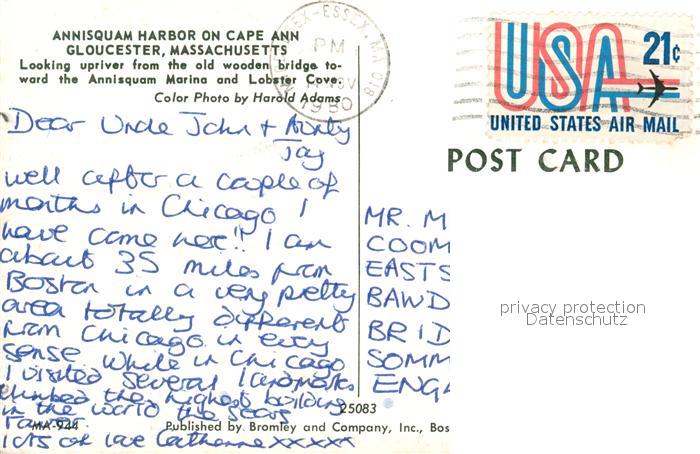 ANNISQUAM HARBOR ON CAPE ANN
GLOUCESTER, MASSACHUSETTS
Looking upriver from the old wooden bridge to-
ward the Annisquam Marina and Lobster Cove.
Color Photo by Harold Adams
Dear Uncle John + Aunty
Joy
well after a couple of
months in Chicago I
have come here!! I am
about 35 miles from
Boston in a very pretty
area totally different
from Chicago in every
sense while in Chicago
I visited several landmarks
climbed the highest building
in the world the Sears
Tower
lots of love Catherine xxxxx
MA-944
25083
Published by Bromley and Company, Inc., Bos
ESSEX-ESSEX, MA 018
PM
NOV
1980
USA 21¢
UNITED STATES AIR MAIL
POST CARD
MR. M
COOM
EASTS
BAWD
BRID
SOMM
ENGA
privacy protection
Datenschutz